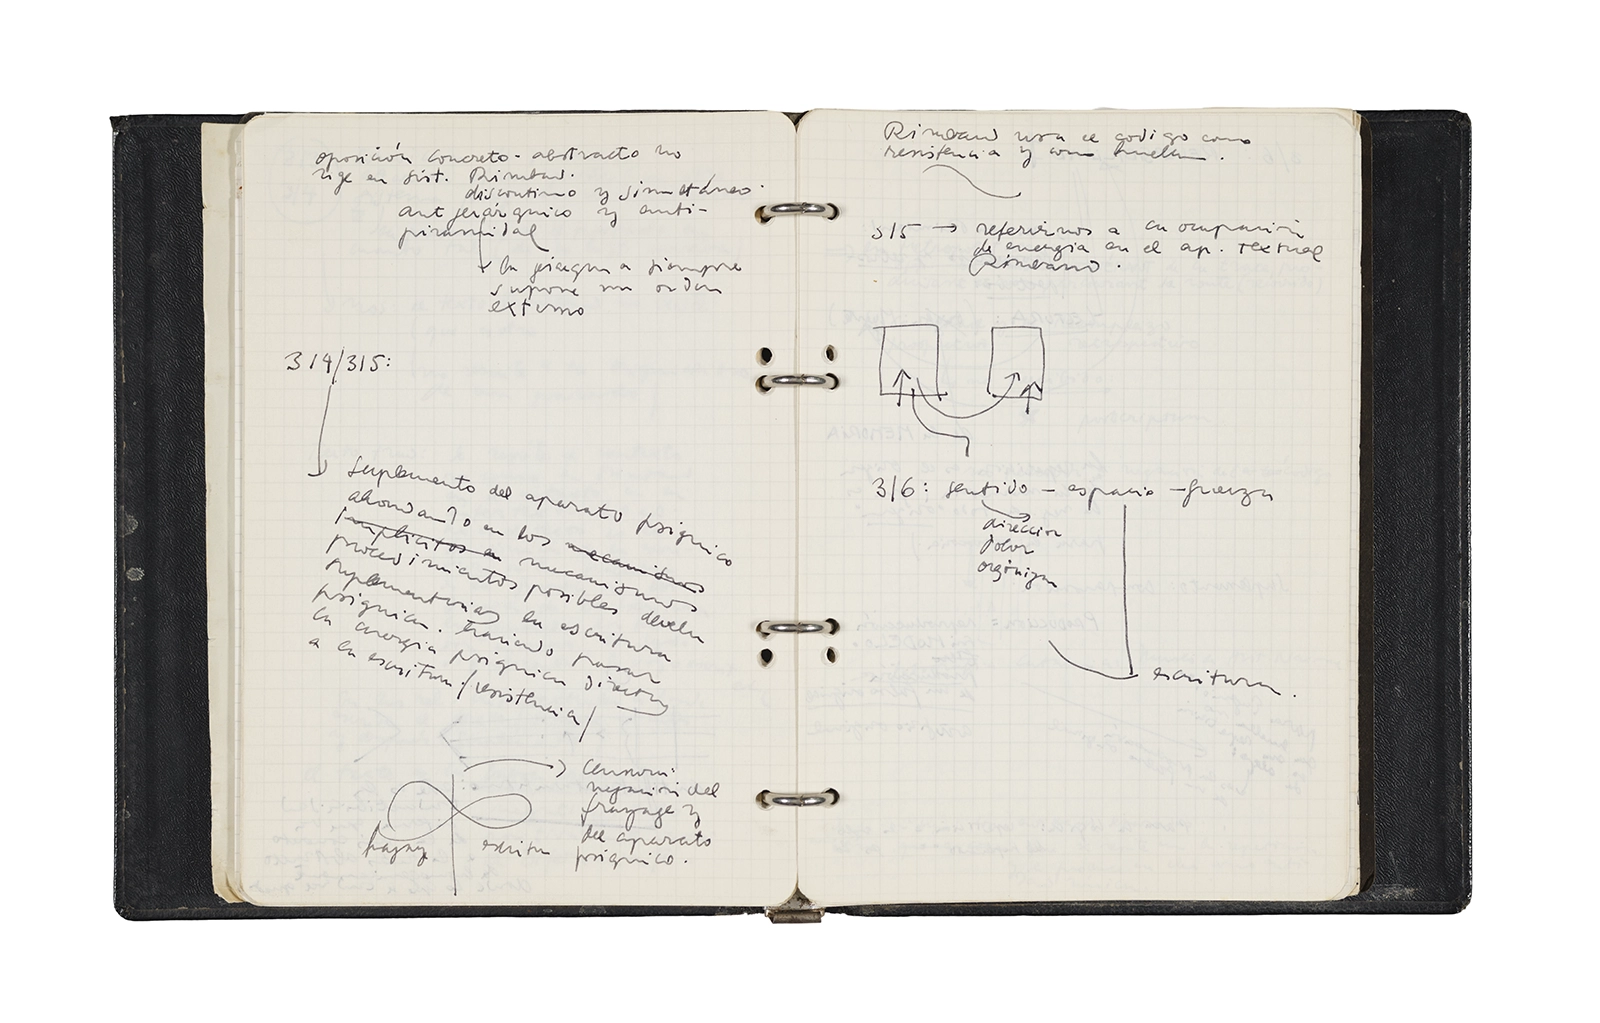 oposición concreto - abstracto no
rige en sist. Rimbaud.
discontinuo y simultáneo.
antjerárquico y anti-
piramidal
la jerarquía siempre
supone un orden
externo
314/315:
Suplemento del aparato psíquico
ahondando en los mecanismos
implicitos en mecanismos
procedimientos posibles develar
suplementarias la escritura
psíquica. haciendo pasar
la energía psíquica directa
a la escritura. /resistencia/
censura:
negación del
frayage y
del aparato
psíquico.
escritura
Rimbaud usa el código como
resistencia y como huella.
315 → referirnos a la ocupación
de energía en el ap. textual
Rimbaud.
316: sentido - espacio - fuerza
dirección
dolor
escritura.